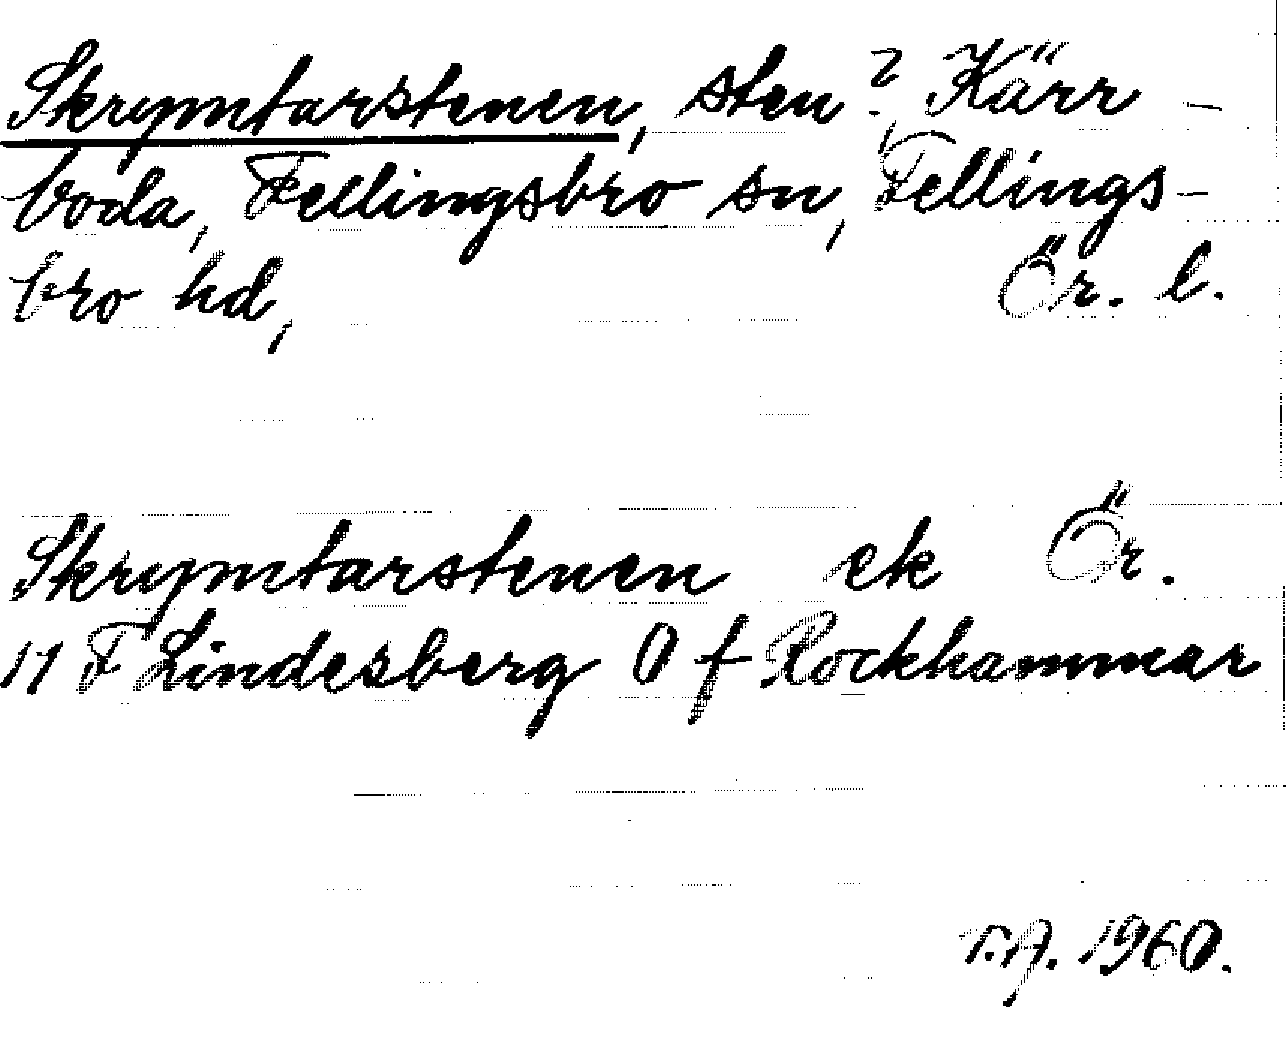 Skrymtarstenen, sten?, Kärr-
boda, Fellingsbro sn, Fellings-
bro hd, Ör. l.
Skrymtarstenen ek Ör.
11 F Lindesberg O f Rockhammar
T.A. 1960.